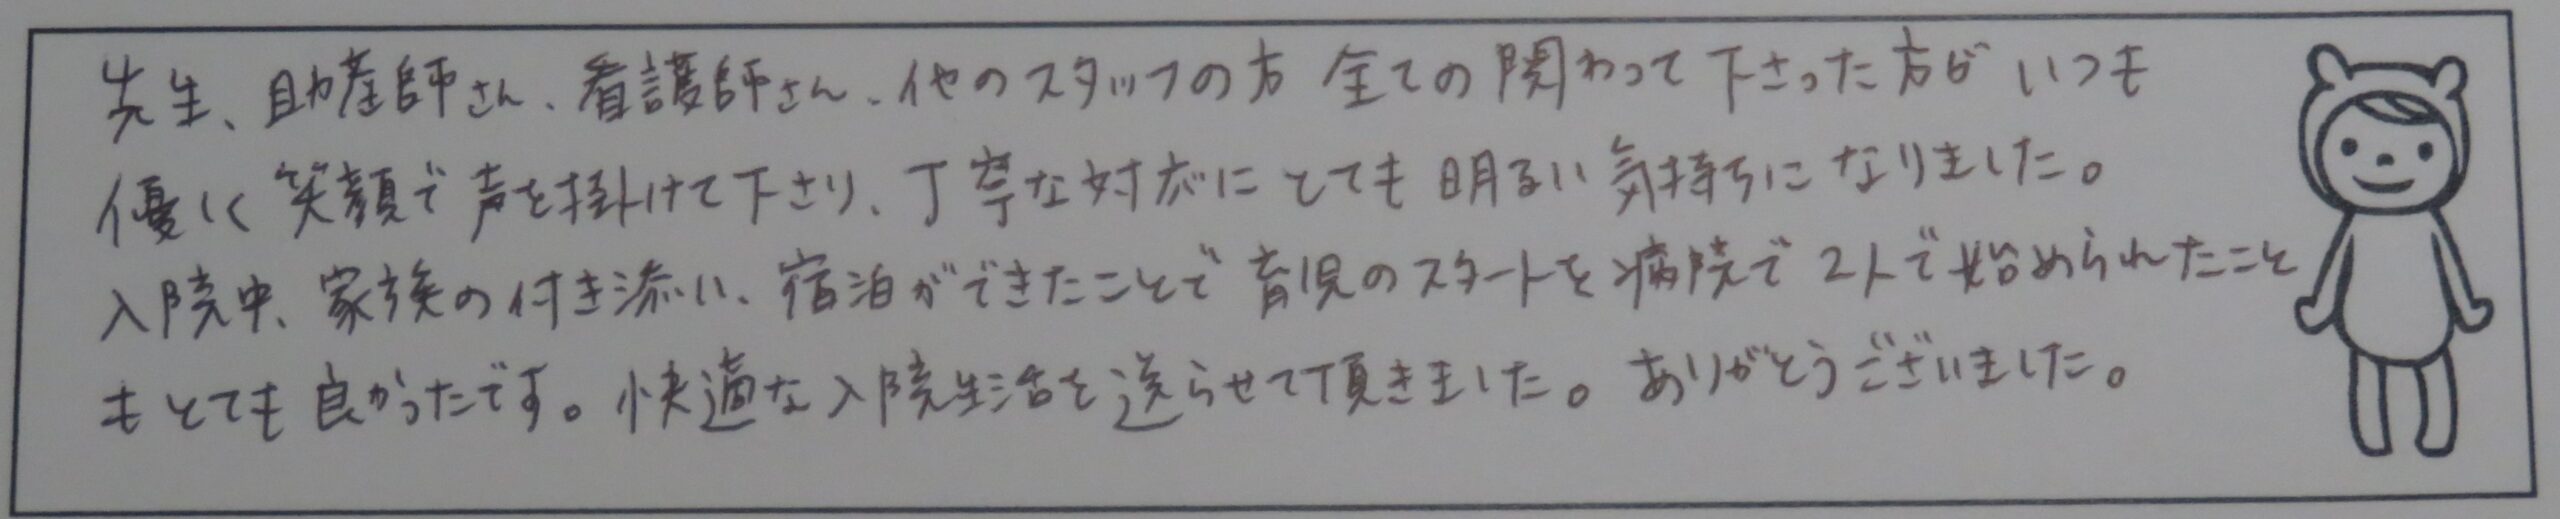 先生、助産師さん、看護師さん、他のスタッフの方 全ての関わって下さった方が いつも
優しく笑顔で声を掛けて下さり、丁寧な対応にとても明るい気持ちになりました。
入院中、家族の付き添い、宿泊ができたことで育児のスタートを病院で2人で始められたこと
もとても良かったです。快適な入院生活を送らせて頂きました。ありがとうございました。